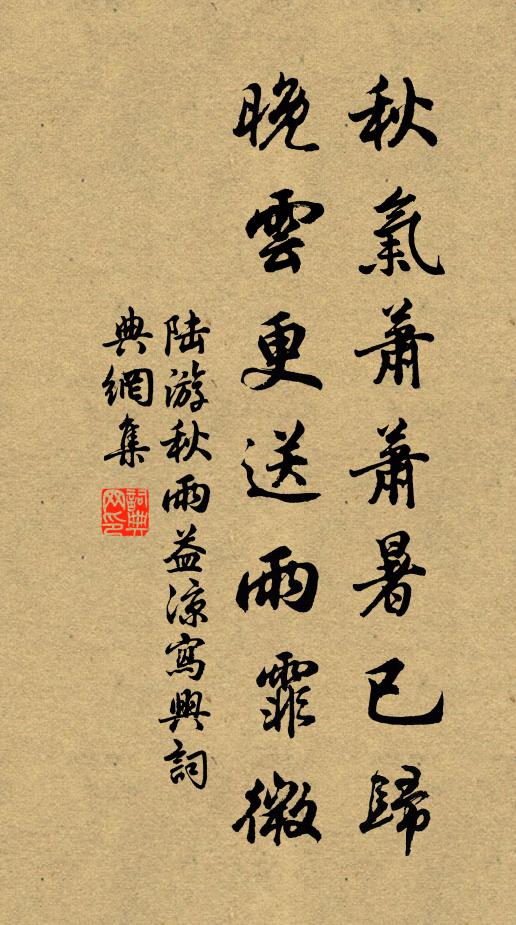 秋氣蕭蕭暑已歸
晚雲更送雨霏微
陆游秋雨益涼寫興詞
典網集
詞典網印